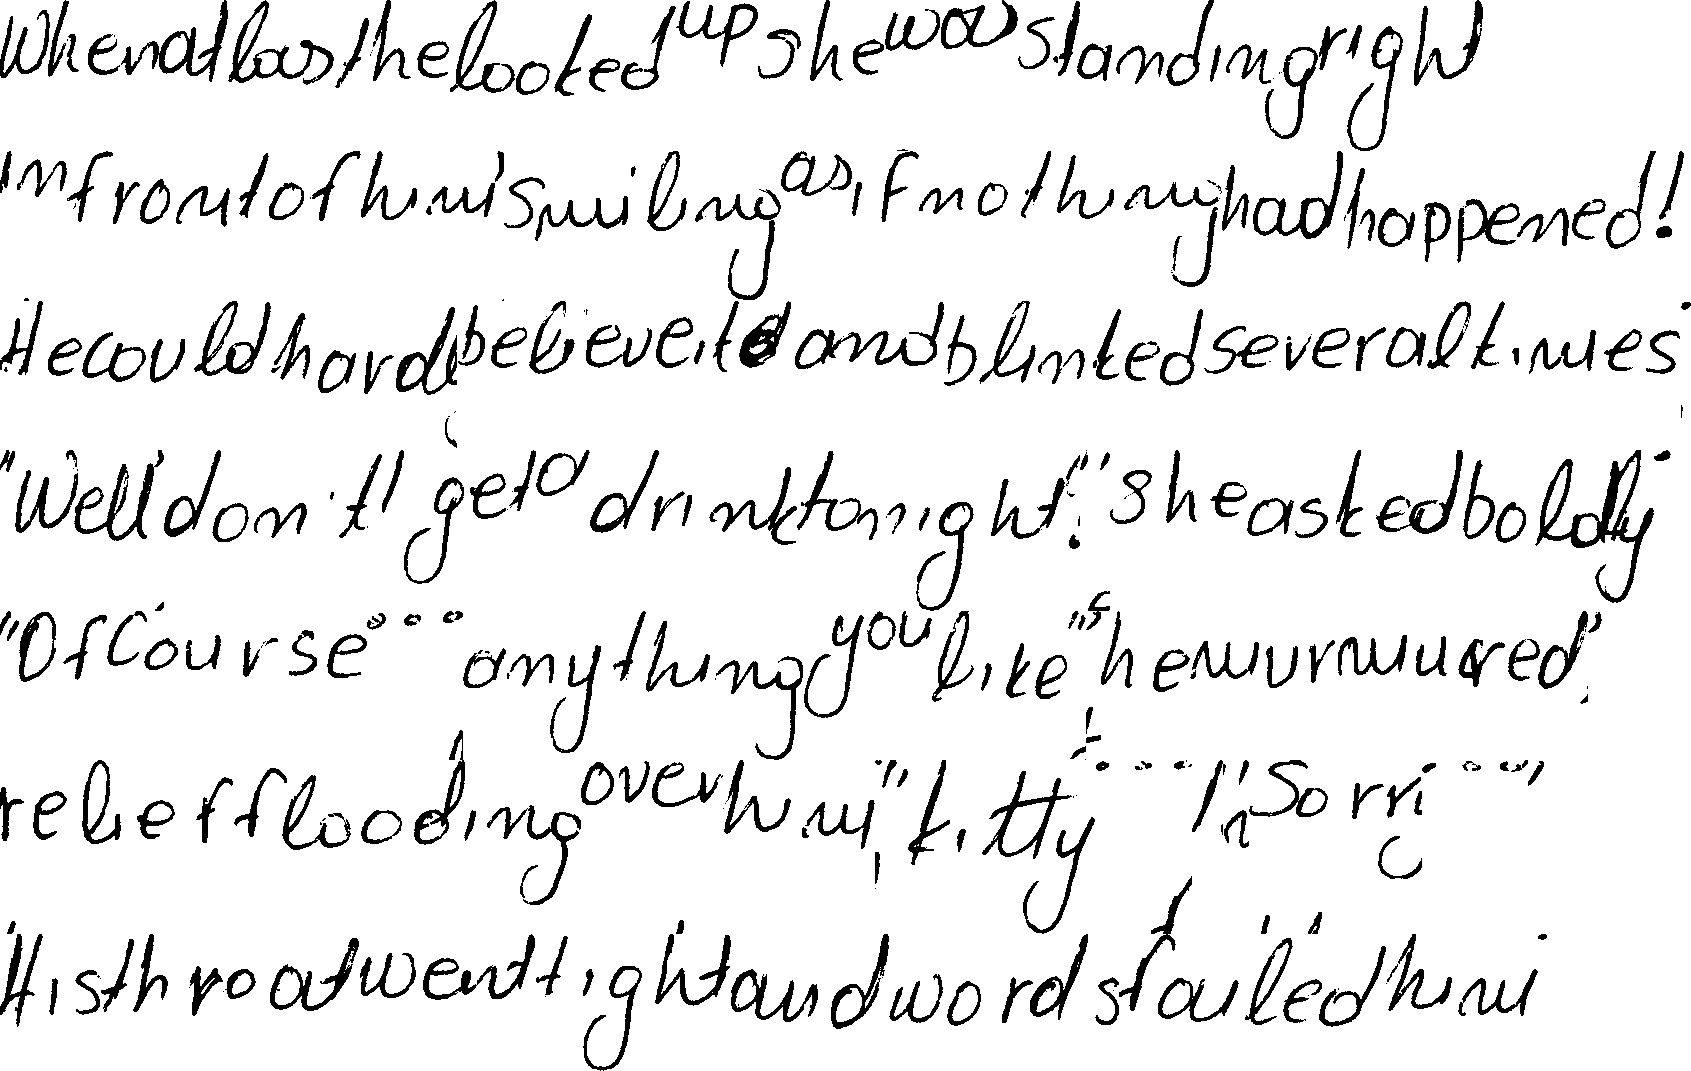 When at last he looked up she was standing right
in front of him, smiling as if nothing had happened!
He could hardly believe it and blinked several times.
"Well, don't I get a drink tonight?" she asked boldly.
"Of course... anything you like", he murmured,
relief flooding over him, "Kitty... I'm sorry..."
His throat went tight and words failed him.